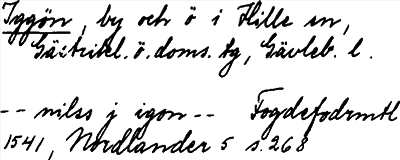 Iggön, by och ö i Hille sn,
Gästrikl. ö. doms. tg, Gävleb. l.
-- nilss j igon -- Fogdefodrmtl
1541, Nordlander 5 s. 268